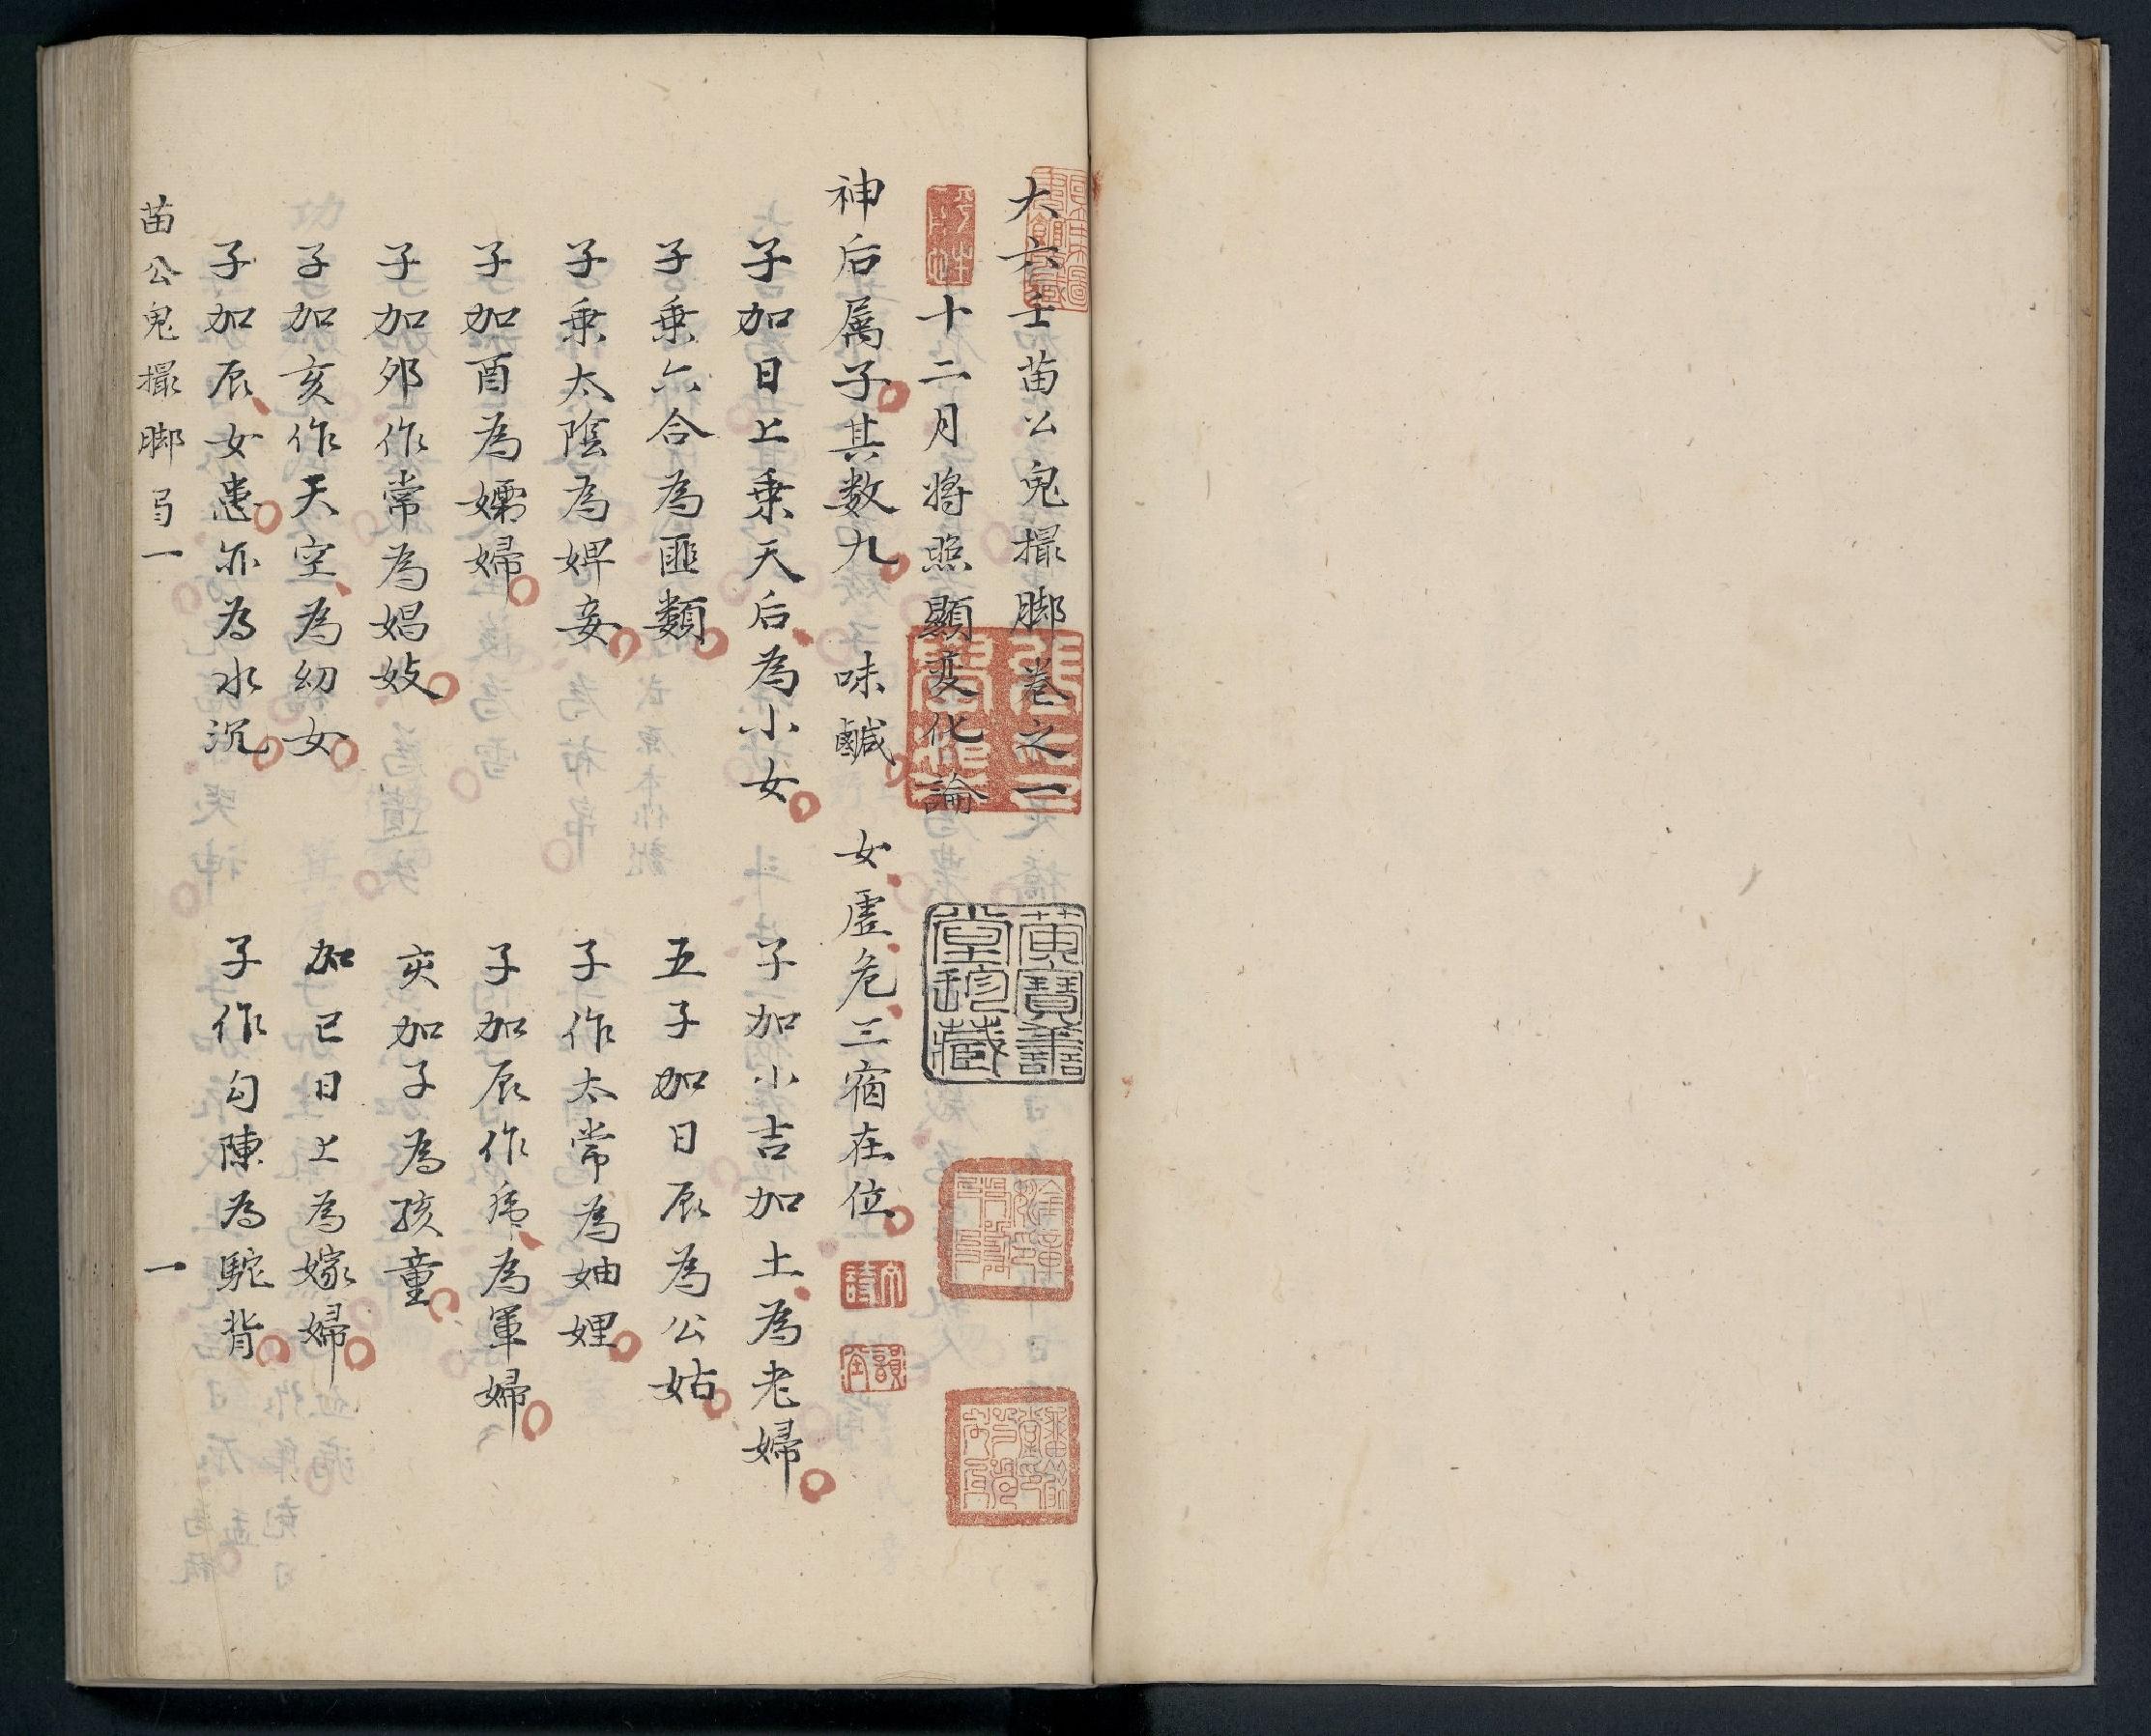 大六壬苗公鬼撮脚卷之一
十二月將照顯変化論
神后属子其数九 味鹹 女虚危三宿在位
子加日上乗天后為小女 子加小吉加土為老婦
子乗六合為匪類 五子加日辰為公姑
子乗太陰為婢妾 子作太常為妯娌
子加酉為孀婦 子加辰作虎為軍婦
子加夘作常為娼妓 亥加子為孩童
子加亥作天空為幼女 加已日上為嫁婦
子加辰女患亦為水沉 子作勾陳為駝背
苗公鬼撮脚 一 一
黄寶善堂珍藏